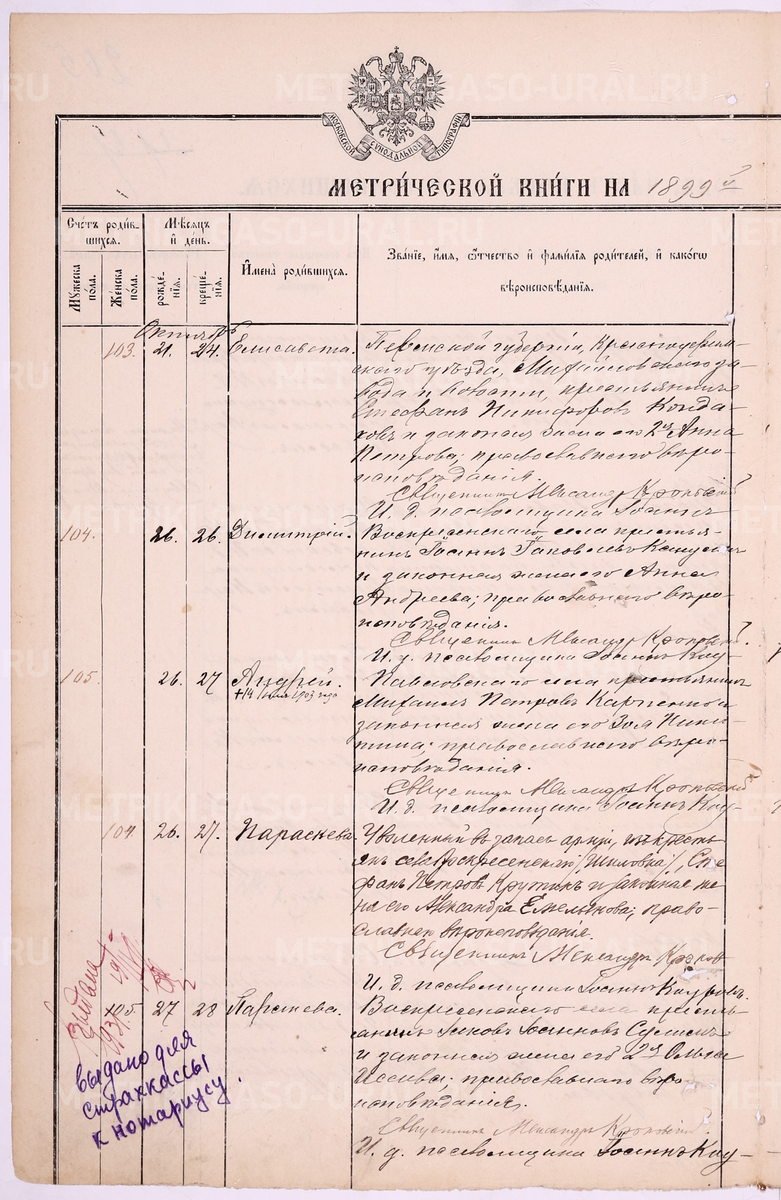 МОСКОВСКОЙ СѴНОДАЛЬНОЙ ТИПОГРАФІИ
МЕТРИ́ЧЕСКОЙ КНИ́ГИ НА 1899 й
Счетъ роди́вшихся.
Мꙋжеска по́ла.
Же́нска по́ла.
Мѣ́сяцъ и҆ де́нь.
рожде́нїя.
креще́нїя.
И҆мена̀ роди́вшихся.
Зва́нїе, и҆́мя, ѻ҆́тчество и҆ фами́лїя роди́телей, и҆ како́гѡ
вѣроисповѣ́данїя.
Октябрь
103. 21. 24. Елисавета.
Пермской губерніи, Красноуфим-
скаго уѣзда, Михайловскаго за-
вода и волости, крестьянинъ
Стефанъ Никифоровъ Конда-
ковъ и законная жена его 2я Анна
Петрова; православнаго вѣро-
исповѣданія.
Священникъ Александръ
И. д. псаломщика Іоаннъ
104. 26. 26. Димитрій.
Воскресенскаго села крестья-
нинъ Іоаннъ Іаковлевъ
и законная жена его Анна
Андреева; православнаго вѣро-
исповѣданія.
Священникъ Александръ
И. д. псаломщика Іоаннъ Кау-
105. 26. 27 Андрей.
1903 года
Павловскаго села крестьянинъ
Михаилъ Петровъ Карпенко и
законная жена его Зоя Ники-
тина; православнаго вѣро-
исповѣданія.
Священникъ Александръ
И. д. псаломщика Іоаннъ Кау-
104 26. 27. Параскева.
Уволенный въ запасъ арміи, изъ кресть-
янъ села Воскресенскаго /Шиловка/, Сте-
фанъ Петровъ Крутинъ и законная же-
на его Александра Емельянова; право-
славнаго вѣроисповѣданія.
Священникъ Александръ
И. д. псаломщика Іоаннъ Кауровъ.
105. 27 28 Параскева.
Воскресенскаго села кресть-
янинъ Іаковъ Іоанновъ
и законная жена его 2я Ольга
; православнаго вѣро-
исповѣданія.
Священникъ Александръ
И. д. псаломщика Іоаннъ Кау-
Выдана
1931
выдано для
страхкассы
к нотариусу.
METRIKI.GASO-URAL.RU